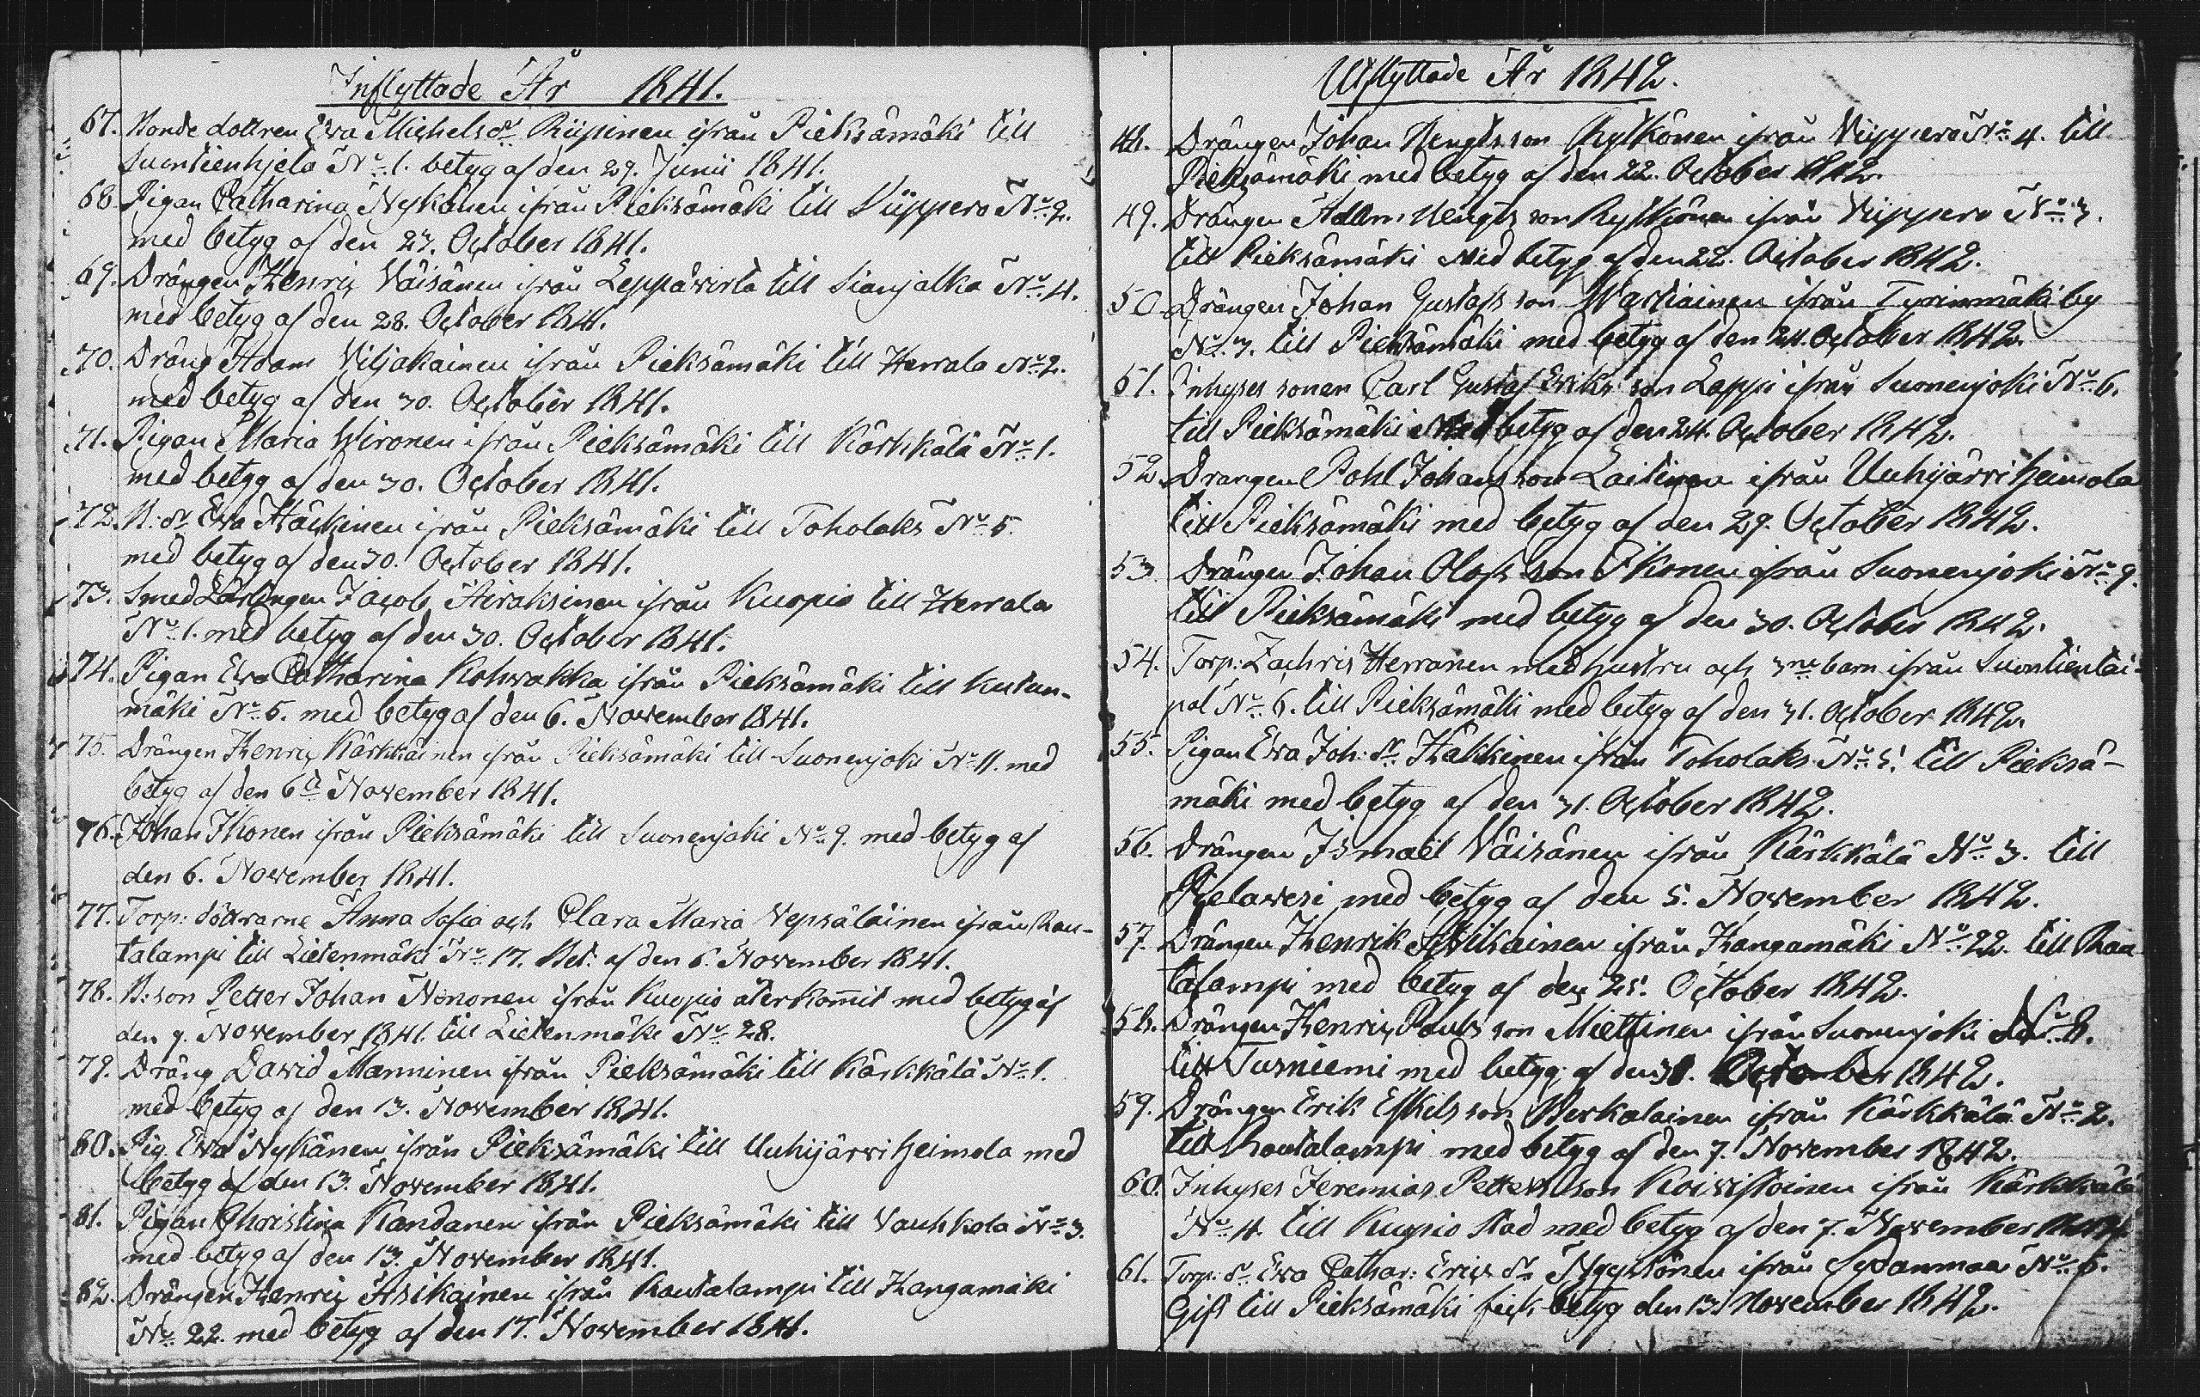 Inflyttade År 1841.
67. Bonde dottren Eva Michelsdr Riipinen ifrån Pieksämäki till
Suontienhjelo No 1. betyg af den 29. Junii 1841.
68. Pigan Catharina Nykänen ifrån Pieksämäki till Viippero No 2.
med betyg af den 23. October 1841.
69. Drängen Henric Väisänen ifrån Leppävirta till Sianjalka No 4.
med betyg af den 28. October 1841.
70. Dräng Adam Viljakainen ifrån Pieksämäki till Herrala No 2.
med betyg af den 30. October 1841.
71. Pigan Maria Wironen ifrån Pieksämäki till Kärkkälä No 1.
med betyg af den 30. October 1841.
72. B: dr Eva Häckinen ifrån Pieksämäki till Toholaks No 5
med betyg af den 30. October 1841.
73. Smed Lärlingen Jacob Hiraksinen ifrån Kuopio till Herrala
No 1. med betyg af den 30. October 1841.
74. Pigan Eva Catharina Kohvakka ifrån Pieksämäki till Kutun-
mäki No 5. med betyg af den 6. November 1841.
75. Drängen Henric Kärkkäinen ifrån Pieksämäki till Suonenjoki No 11. med
betyg af den 6te November 1841.
76. Johan Ikonen ifrån Pieksämäki till Suonenjoki No 9. med betyg af
den 6. November 1841.
77. Torp: döttrarne Anna Sofia och Clara Maria Vepsäläinen ifrån Rau-
talampi till Lietenmäki No 17. Bet: af den 6. November 1841.
78. B: son Petter Johan Nononen ifrån Kuopio återkommit med betyg af
den 9. November 1841. till Lietenmäki No 28.
79. Dräng David Manninen ifrån Pieksämäki till Kärkkälä No 1.
med betyg af den 13. November 1841.
80. Pig. Eva Nykänen ifrån Pieksämäki till Uuhijärvi Heimola med
betyg af den 13. November 1841.
81. Pigan Christina Kandanen ifrån Pieksämäki till Vauhkola No 3.
med betyg af den 13. November 1841.
82. Drängen Henric Asikainen ifrån Rautalampi till Hangamäki
No 22. med betyg af den 17. November 1841.
Utflyttade År 1842.
48. Drängen Johan Bengtsson Rytkönen ifrån Viippero No 4. till
Pieksämäki med betyg af den 22. October 1842.
49. Drängen Adam Bengts son Rytkönen ifrån Viippero No 3.
till Pieksämäki med betyg af den 22. October 1842.
50. Drängen Johan Gustafs son Wartiainen ifrån Tyrinmäki by
No 3. till Pieksämäki med betyg af den 24. October 1842.
51. Inhyses sonen Carl Gustaf Eriks son Lappi ifrån Suonenjoki No 6.
till Pieksämäki med betyg af den 24. October 1842.
52. Drangen Pohl Johans son Laitinen ifrån Uuhijärvi Heimola
till Pieksämäki med betyg af den 29. October 1842.
53. Drängen Johan Olofs son Ikonen ifrån Suonenjoki No 9.
till Pieksämäki med betyg af den 30. October 1842.
54. Torp: Zachris Herranen med hustru och 3ne barn ifrån Suontientai-
pal No 6. till Pieksämäki med betyg af den 31. October 1842.
55. Pigan Eva Joh: dr Häkkinen ifrån Toholaks No 5. till Pieksä-
mäki med betyg af den 31. October 1842.
56. Drängen Ismael Väisänen ifrån Kärkkälä No 3. till
Pielavesi med betyg af den 5. November 1842.
57. Drängen Henrik Asikainen ifrån Hangamäki No 22. till Rau
talampi med betyg af den 25. October 1842.
58. Drängen Henric Pauls son Miettinen ifrån Suonenjoki No 8.
till Tusniemi med betyg af den 31. October 1842.
59. Drängen Erik Eskils son Kerkalainen ifrån Kärkkälä No 2.
till Rautalampi med betyg af den 7. November 1842.
60. Inhyses Jeremias Petters son Koivistoinen ifrån Kärkkälä
No 4. till Kuopio Stad med betyg af den 7. November 1842
61. Torp: dr Eva Cathar: Erics dr ifrån Sydanmaa No 5.
Gift till Pieksämäki fick betyg den 13. November 1842.